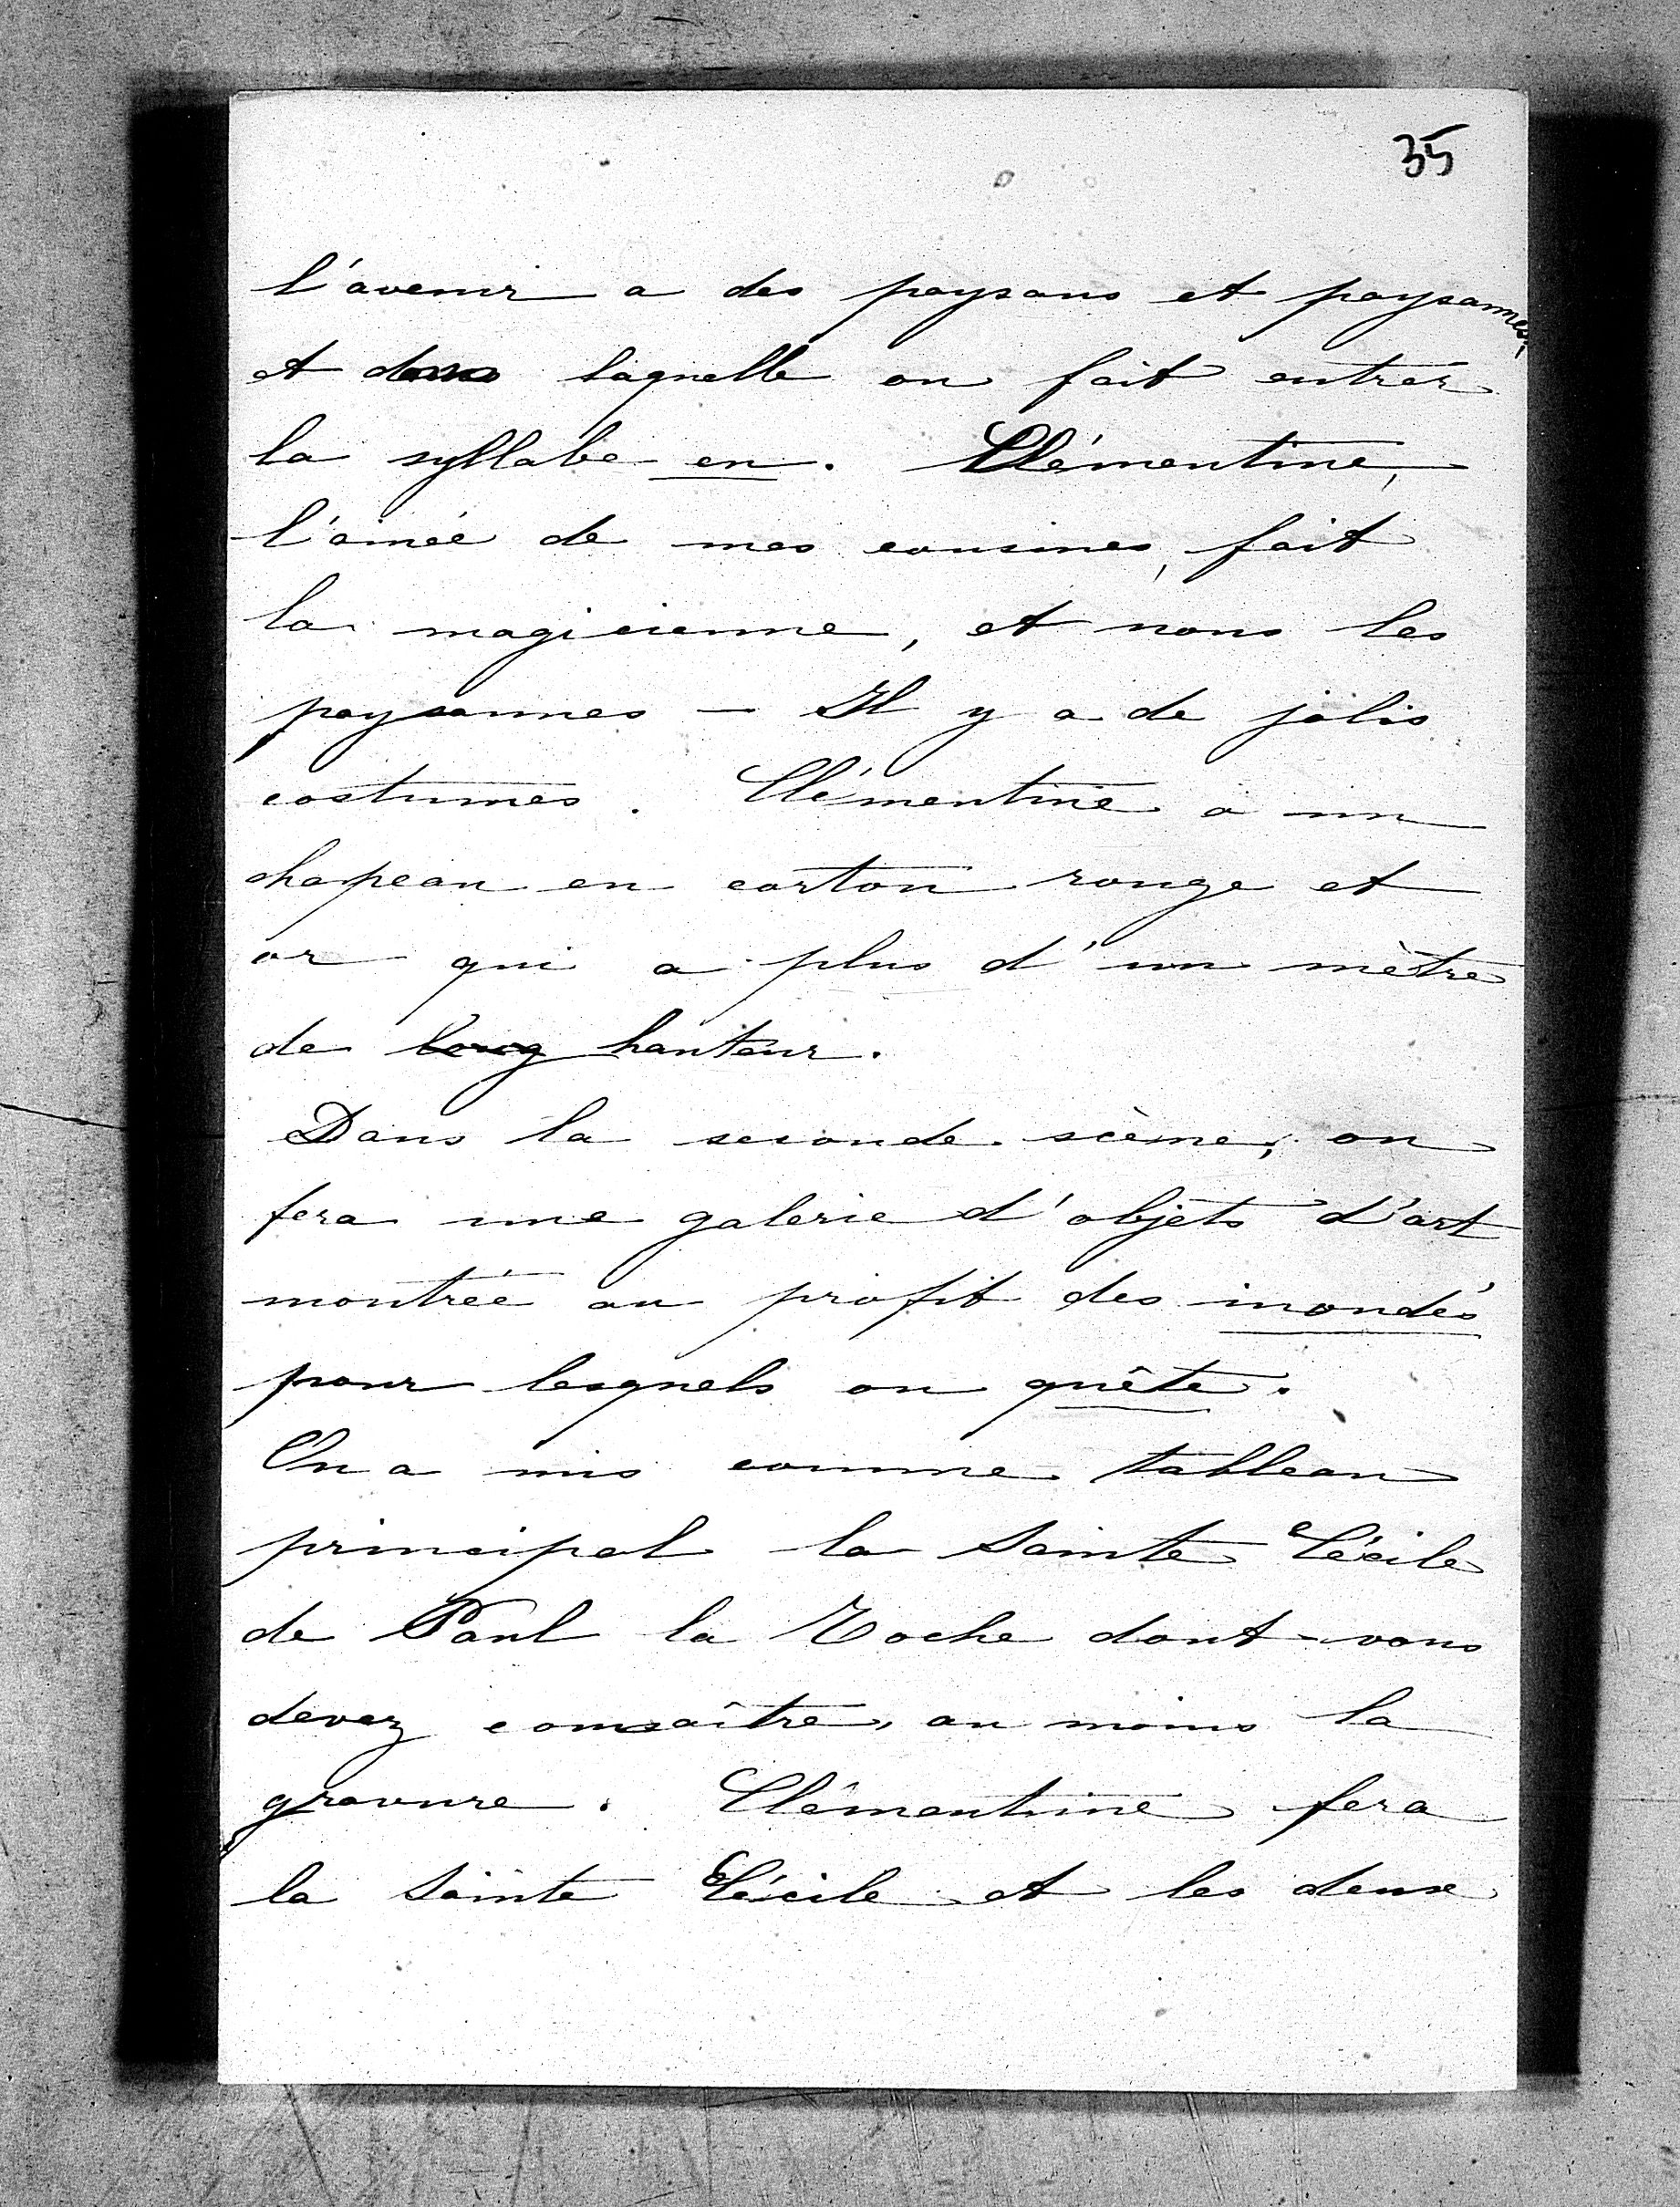 35
l'avenir a des paysans et paysannes,
et dans laquelle on fait entrer
la syllabe en. Clémentine,
l'aînée de mes cousines, fait
la magicienne, et nous les
paysannes — Il y a de jolis
costumes. Clémentine a un
chapeau en carton rouge et
or qui a plus d'un mètre
de long hauteur.
Dans la seconde scène, on
fera une galerie d'objets d'art
montrée au profit des inondés
pour lesquels on quête.
On a mis comme tableau
principal la Sainte Cécile
de Paul la Roche dont vous
devez connaître, au moins la
gravure. Clémentine fera
la Sainte Cécile et les deux